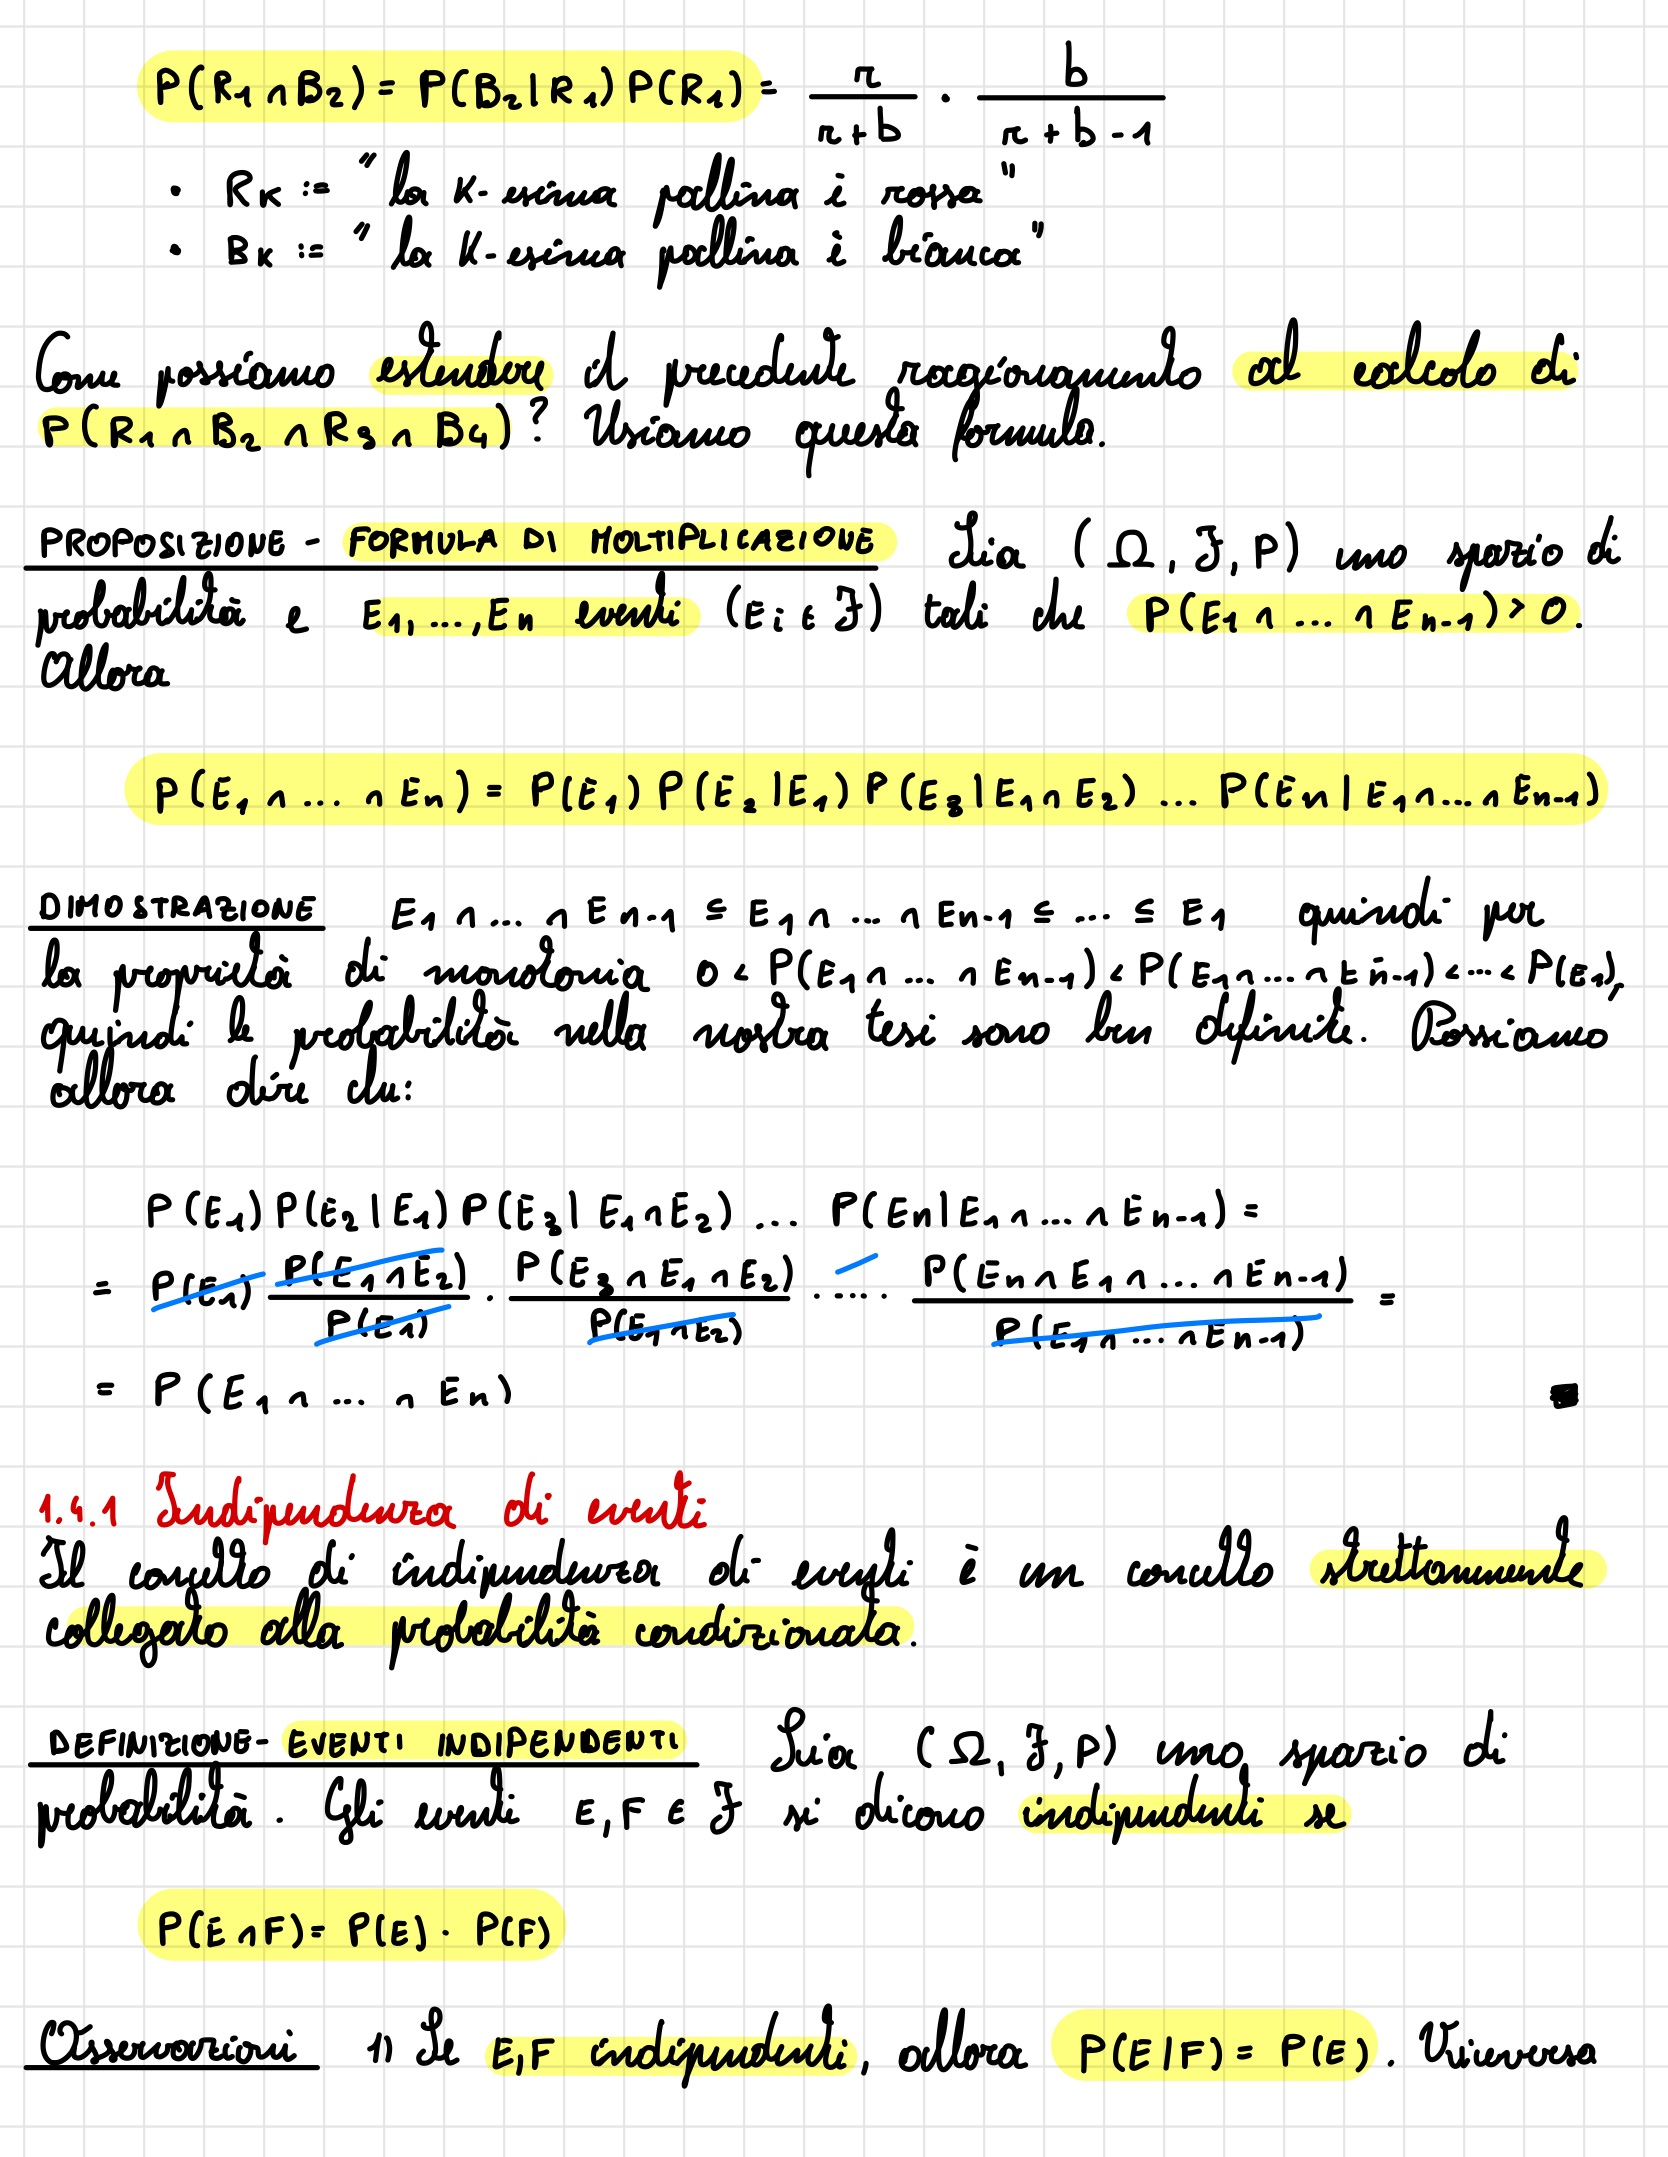 P(R₁ ∩ B₂) = P(B₂ | R₁) P(R₁) = r/(r+b) · b/(r+b-1)
• Rₖ := "la K-esima pallina è rossa"
• Bₖ := "la K-esima pallina è bianca"
Come possiamo estendere il precedente ragionamento al calcolo di
P(R₁ ∩ B₂ ∩ R₃ ∩ B₄)? Usiamo questa formula.
PROPOSIZIONE - FORMULA DI MOLTIPLICAZIONE Sia (Ω, F, P) uno spazio di
probabilità e E₁, ..., Eₙ eventi (Eᵢ ∈ F) tali che P(E₁ ∩ ... ∩ Eₙ₋₁) > 0.
Allora
P(E₁ ∩ ... ∩ Eₙ) = P(E₁) P(E₂ | E₁) P(E₃ | E₁ ∩ E₂) ... P(Eₙ | E₁ ∩ ... ∩ Eₙ₋₁)
DIMOSTRAZIONE E₁ ∩ ... ∩ Eₙ₋₁ ⊆ E₁ ∩ ... ∩ Eₙ₋₁ ⊆ ... ⊆ E₁ quindi per
la proprietà di monotonia 0 < P(E₁ ∩ ... ∩ Eₙ₋₁) < P(E₁ ∩ ... ∩ Eₙ₋₁) < ... < P(E₁),
quindi le probabilità nella nostra tesi sono ben definite. Possiamo
allora dire che:
P(E₁) P(E₂ | E₁) P(E₃ | E₁ ∩ E₂) ... P(Eₙ | E₁ ∩ ... ∩ Eₙ₋₁) =
= P(E₁) P(E₁ ∩ E₂)/P(E₁) · P(E₃ ∩ E₁ ∩ E₂)/P(E₁ ∩ E₂) · ... · P(Eₙ ∩ E₁ ∩ ... ∩ Eₙ₋₁)/P(E₁ ∩ ... ∩ Eₙ₋₁) =
= P(E₁ ∩ ... ∩ Eₙ) ■
1.4.1 Indipendenza di eventi
Il concetto di indipendenza di eventi è un concetto strettamente
collegato alla probabilità condizionata.
DEFINIZIONE - EVENTI INDIPENDENTI Sia (Ω, F, P) uno spazio di
probabilità. Gli eventi E, F ∈ F si dicono indipendenti se
P(E ∩ F) = P(E) · P(F)
Osservazioni 1) Se E, F indipendenti, allora P(E | F) = P(E). Viceversa